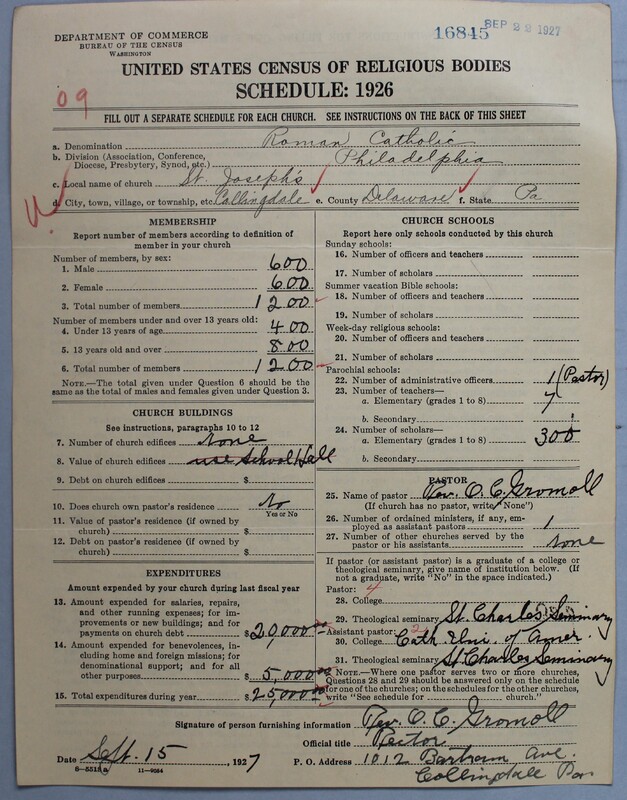 DEPARTMENT OF COMMERCE
BUREAU OF THE CENSUS
WASHINGTON
16845 SEP 22 1927
UNITED STATES CENSUS OF RELIGIOUS BODIES
SCHEDULE: 1926
09
FILL OUT A SEPARATE SCHEDULE FOR EACH CHURCH. SEE INSTRUCTIONS ON THE BACK OF THIS SHEET
a. Denomination Roman Catholic
b. Division (Association, Conference, Diocese, Presbytery, Synod, etc.) Philadelphia
c. Local name of church St. Joseph's
d. City, town, village, or township, etc. Collingdale e. County Delaware f. State Pa
MEMBERSHIP
Report number of members according to definition of
member in your church
Number of members, by sex:
1. Male 600
2. Female 600
3. Total number of members 1200
Number of members under and over 13 years old:
4. Under 13 years of age 400
5. 13 years old and over 800
6. Total number of members 1200
NOTE.—The total given under Question 6 should be the
same as the total of males and females given under Question 3.
CHURCH BUILDINGS
See instructions, paragraphs 10 to 12
7. Number of church edifices none
8. Value of church edifices use School Hall
9. Debt on church edifices $
10. Does church own pastor's residence No
Yes or No
11. Value of pastor's residence (if owned by
church) $
12. Debt on pastor's residence (if owned by
church) $
EXPENDITURES
Amount expended by your church during last fiscal year
13. Amount expended for salaries, repairs,
and other running expenses; for im-
provements or new buildings; and for
payments on church debt $20,000
14. Amount expended for benevolences, in-
cluding home and foreign missions; for
denominational support; and for all
other purposes 5,000
15. Total expenditures during year $25,000
CHURCH SCHOOLS
Report here only schools conducted by this church
Sunday schools:
16. Number of officers and teachers
17. Number of scholars
Summer vacation Bible schools:
18. Number of officers and teachers
19. Number of scholars
Week-day religious schools:
20. Number of officers and teachers
21. Number of scholars
Parochial schools:
22. Number of administrative officers 1 (Pastor)
23. Number of teachers—
a. Elementary (grades 1 to 8) 7
b. Secondary
24. Number of scholars—
a. Elementary (grades 1 to 8) 300
b. Secondary
PASTOR
25. Name of pastor Rev. O. C. Gromoll
(If church has no pastor, write "None")
26. Number of ordained ministers, if any, em-
ployed as assistant pastors 1
27. Number of other churches served by the
pastor or his assistants none
If pastor (or assistant pastor) is a graduate of a college or
theological seminary, give name of institution below. (If
not a graduate, write "No" in the space indicated.)
Pastor: 4
28. College
29. Theological seminary St. Charles Seminary
Assistant pastor: 2
30. College Cath. Univ. of Amer.
31. Theological seminary St Charles Seminary
NOTE.—Where one pastor serves two or more churches,
Questions 28 and 29 should be answered only on the schedule
for one of the churches; on the schedules for the other churches,
write "See schedule for church."
Signature of person furnishing information Rev. O. C. Gromoll
Official title Rector
Date Sept. 15, 1927 P. O. Address 1012 Bartram Ave.
Collingdale Pa
11—9064